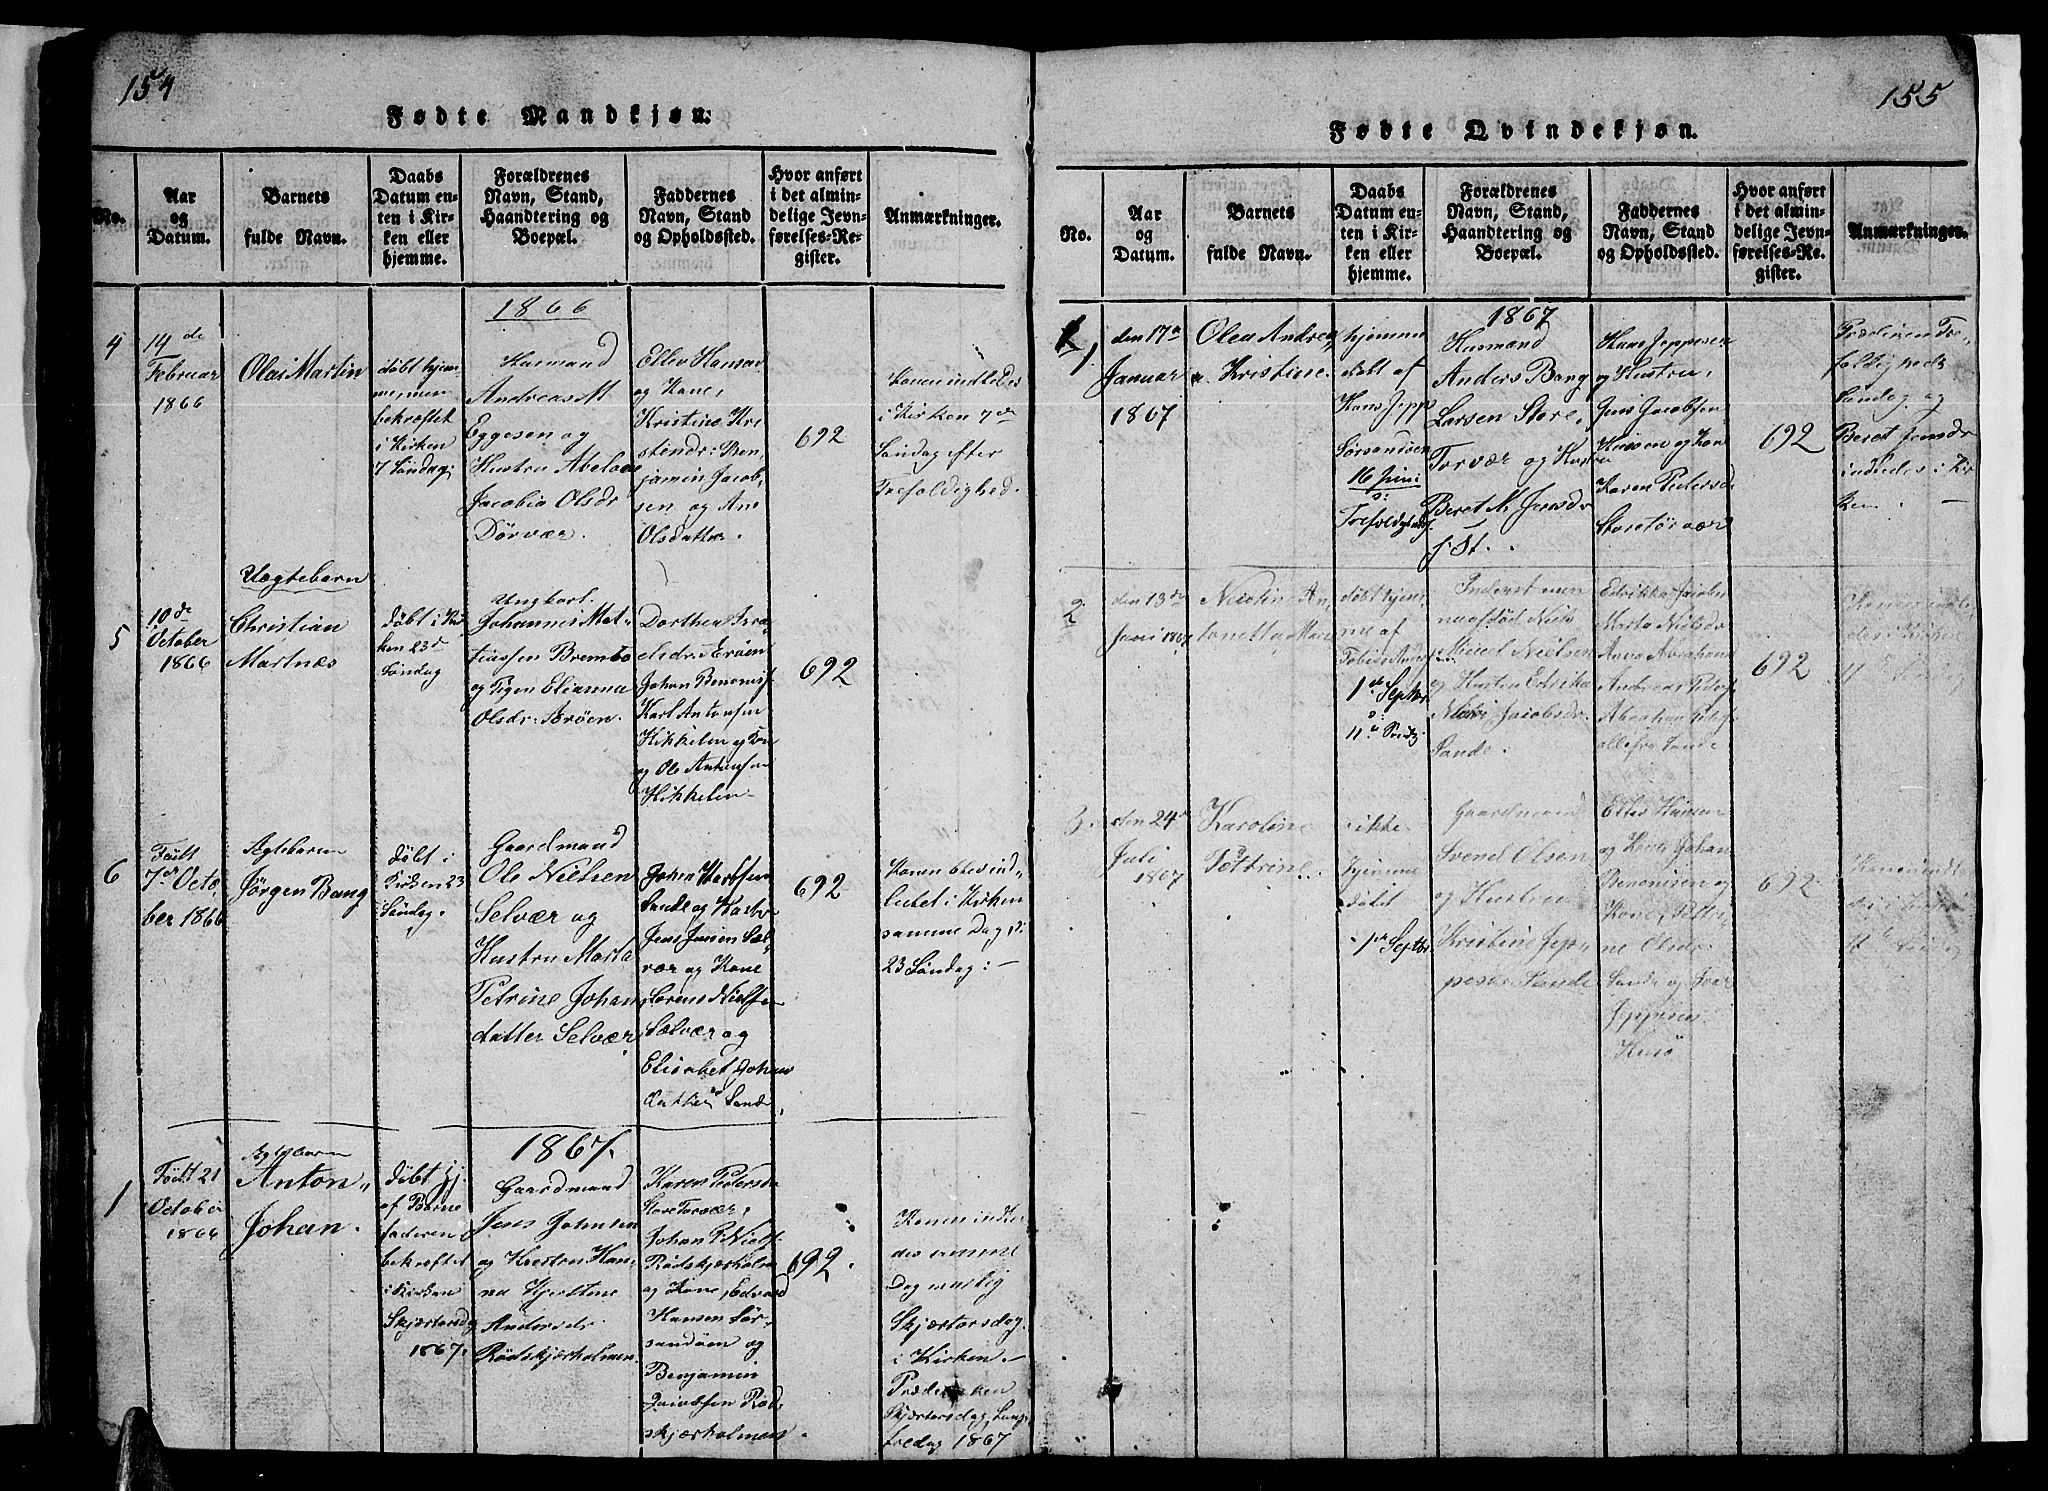 154
Fødte Mandkjøn.
No.
Aar
og
Datum.
Barnets
fulde Navn.
Daabs
Datum en-
ten i Kir-
ken eller
hjemme.
Forældrenes
Navn, Stand,
Haandtering og
Boepæl.
Faddernes
Navn, Stand
og Opholdssted.
Hvor anført
i det almin-
delige Jevn-
førelses-Re-
gister.
Anmærkninger.
1866
4
14de
Februar
1866
Olai Martin
døbt hjem-
me, men
bekræftet
i Kirken
7 Søndag
Husmand
Andreas M
Eggesen og
Hustru Abelone
Jacobia Olsdr
Dørvær.
Ellev Hansen
og Kone,
Kristine Kri
stendr: Ben
jamin Jacob
sen og Ane
Olsdatter
692
Konen indledes
i Kirken 7de
Søndag efter
Trefoldighed.
5
10de
October
1866
Uægtebarn
Christian
Martnæs
døbt i Kir
ken 23de
Søndag
Ungkarl
Johannes Mat-
tiassen Brembo
og Pigen Elianna
Olsdr: Ørøen.
Dorthea Isra
elsdr: Ørøen
Johan Benonis
Karl Antonsen
Hikkelen og Kone
og Ole Antonsen
Hikkelen
692
6
Født
7de Octo
ber 1866
Ægtebarn
Jørgen Bang
døbt i
Kirken 23
Søndag.
Gaardmand
Ole Nielsen
Selvær og
Hustru Marta
Petrine Johan
datter Selvær
Johan
Sande og Hustru
Jens Jensen Sæl
vær og Kone
Lorens Nielsen
Selvær og
Elisabet Johans
datter Sande
692
Konen blev ind
ledet i Kirken
samme Dag
23 Søndag: —
1867.
1
Født 21
October
1866
Ægtebarn
Anton
Johan.
døbt hj.
af Barne
faderen
bekræftet
i Kirken
Skjærtorsdag
1867.
Gaardmand
Jens Johnsen
og Hustru Han
na Hjertine
Andersdr
Rødskjærholmen.
Karen Pedersdr
Store Torvær,
Johan P Niels
Rødskjærholm
og Kone, Edvard
Hansen Sør
sandøen og
Benjamin
Jacobsen Rød
skjærholmen
692.
Konen indle
des samme
Dag
Skjærtorsdag
i Kirken.
Prædiken
Skjærtorsdag, Lang
fredag 1867
155
Fødte Qvindekjøn.
No.
Aar
og
Datum.
Barnets
fulde Navn.
Daabs
Datum en-
ten i Kir-
ken eller
hjemme.
Forældrenes
Navn, Stand,
Haandtering og
Boepæl.
Faddernes
Navn, Stand
og Opholdssted.
Hvor anført
i det almin-
delige Jevn-
førelses-Re-
gister.
Anmærkninger.
1867
1
den 17de
Januar
1867
Olea Andrea
Kristine.
hjemme
døbt af
Hans Jepps
Sørsandøen
16 Juni
s:
Trefoldighed
Husmand
Anders Bang
Larsen Store
Torvær og Hustru
Beret M Jensdr
f St.
Hans Jeppesen
og Hustru,
Jens Jacobsen
Husøen og Kone
Karen Pedersdr
Storetorvær
692
Prædiken Tre
foldigheds
Søndag og
Beret Jensdr
indledes i Kir
ken. —
2
den 13de
Juni 1867
An
tonetta Marie
døbt hjem
me af
Tobias Anders
1de Septbr
s:
11te Søndg
Niels
Mikel Nielsen
og Hustru Edrika
Jacobsdr
Sande.
Edrikka Jacobs
Marta Nielsdr
Anna Abraham
Andreas Peders
Abraham Peders
alle fra Sande
692
Konen indle
des i Kirken
11te Søndag
3.
den 24de
Juli
1867
Karoline
Petrine.
ikke
hjemme
døbt
1de Septbr.
Gaardmand
Svend Olsen
og Hustru
Kristine Jep
pesdr Sande
Ellev Hansen
og Kone, Johan
Benonisen og
Kone, Petri
ne Olsdr
Sande og Ivar
Jeppesen
Husø
692
Konen indle
des i Kirken
11te Søndag